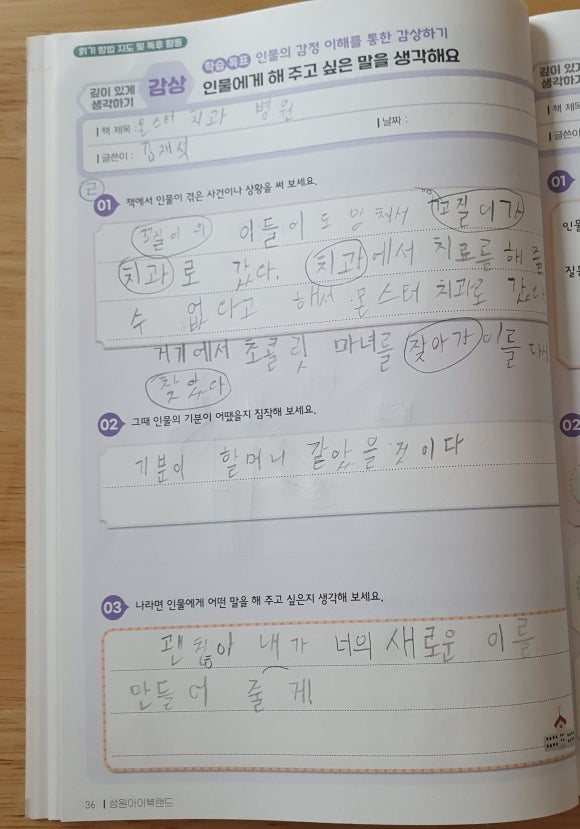 읽기 방법 지도 및 독후 활동
깊이 있게 생각하기
감상
학습 목표 인물의 감정 이해를 통한 감상하기
인물에게 해 주고 싶은 말을 생각해요
책 제목 : 몬스터 치과 병원
날짜 :
글쓴이 : 김재석
01 책에서 인물이 겪은 사건이나 상황을 써 보세요.
이들이 도망쳐서
치과로 갔다. 치과에서 치료를 해 줄
수 없다고 해서 몬스터 치과로 갔다.
거기에서 초콜릿 마녀를 찾아가 이를 다시
찾았다
02 그때 인물의 기분이 어땠을지 짐작해 보세요.
기분이 할머니 같았을 것이다
03 나라면 인물에게 어떤 말을 해 주고 싶은지 생각해 보세요.
내가 너의 새로운 이를
만들어 줄게!
36 성원아이북랜드
깊이 있게
생각하기
책 제목
글쓴이
01
02